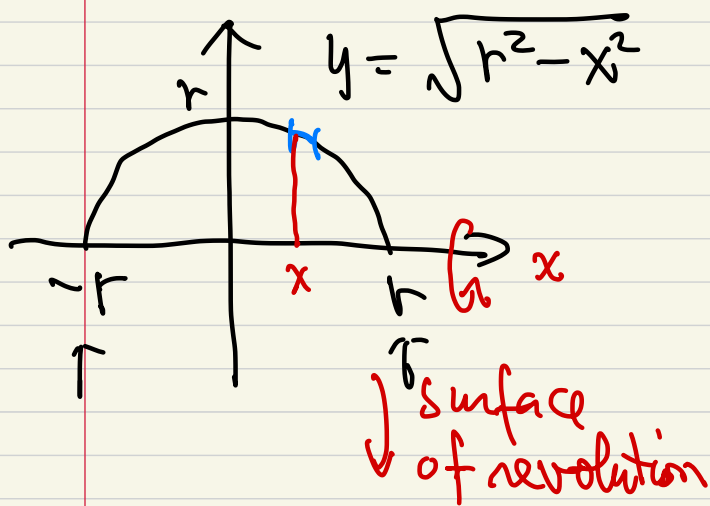 y = √(r² - x²)
r
-r
x
r
x
surface
of revolution